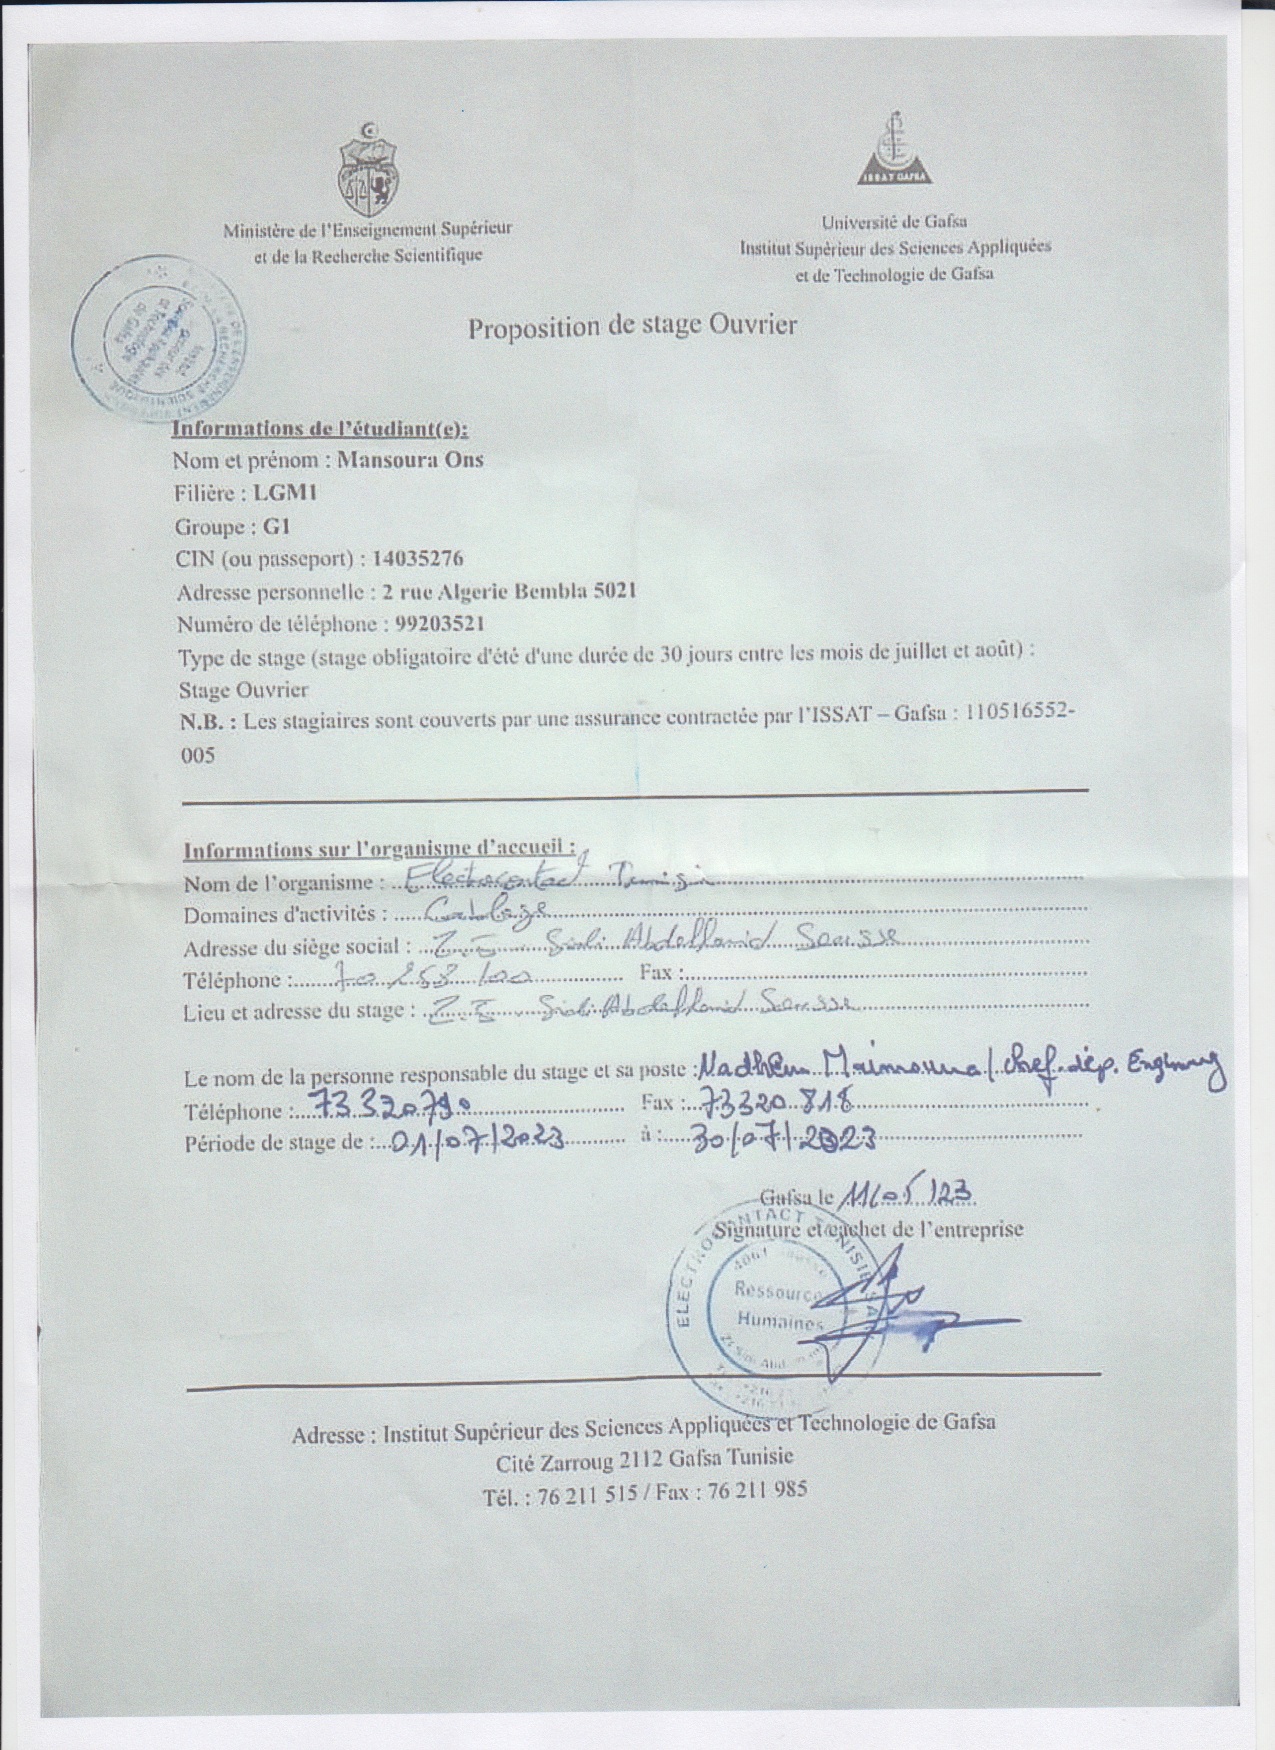 Ministère de l'Enseignement Supérieur
et de la Recherche Scientifique
ISSAT GAFSA
Université de Gafsa
Institut Supérieur des Sciences Appliquées
et de Technologie de Gafsa
Proposition de stage Ouvrier
Informations de l'étudiant(e):
Nom et prénom : Mansoura Ons
Filière : LGM1
Groupe : G1
CIN (ou passeport) : 14035276
Adresse personnelle : 2 rue Algerie Bembla 5021
Numéro de téléphone : 99203521
Type de stage (stage obligatoire d'été d'une durée de 30 jours entre les mois de juillet et août) :
Stage Ouvrier
N.B. : Les stagiaires sont couverts par une assurance contractée par l'ISSAT – Gafsa : 110516552-
005
Informations sur l'organisme d'accueil :
Nom de l'organisme : Electrocontact Tunisia
Domaines d'activités : Cablage
Adresse du siège social : Z.I Sidi Abdelhamid Sousse
Téléphone : 70 258 100 Fax :
Lieu et adresse du stage : Z.I Sidi Abdelhamid Sousse
Le nom de la personne responsable du stage et sa poste : Nadhem Maimouna / chef dép.
Téléphone : 73320790 Fax : 73320 818
Période de stage de : 01/07/2023 à : 30/07/2023
Gafsa le 11/05/23
Signature et cachet de l'entreprise
ELECTROCONTACT TUNISIE SARL
Ressources
Humaines
Adresse : Institut Supérieur des Sciences Appliquées et Technologie de Gafsa
Cité Zarroug 2112 Gafsa Tunisie
Tél. : 76 211 515 / Fax : 76 211 985